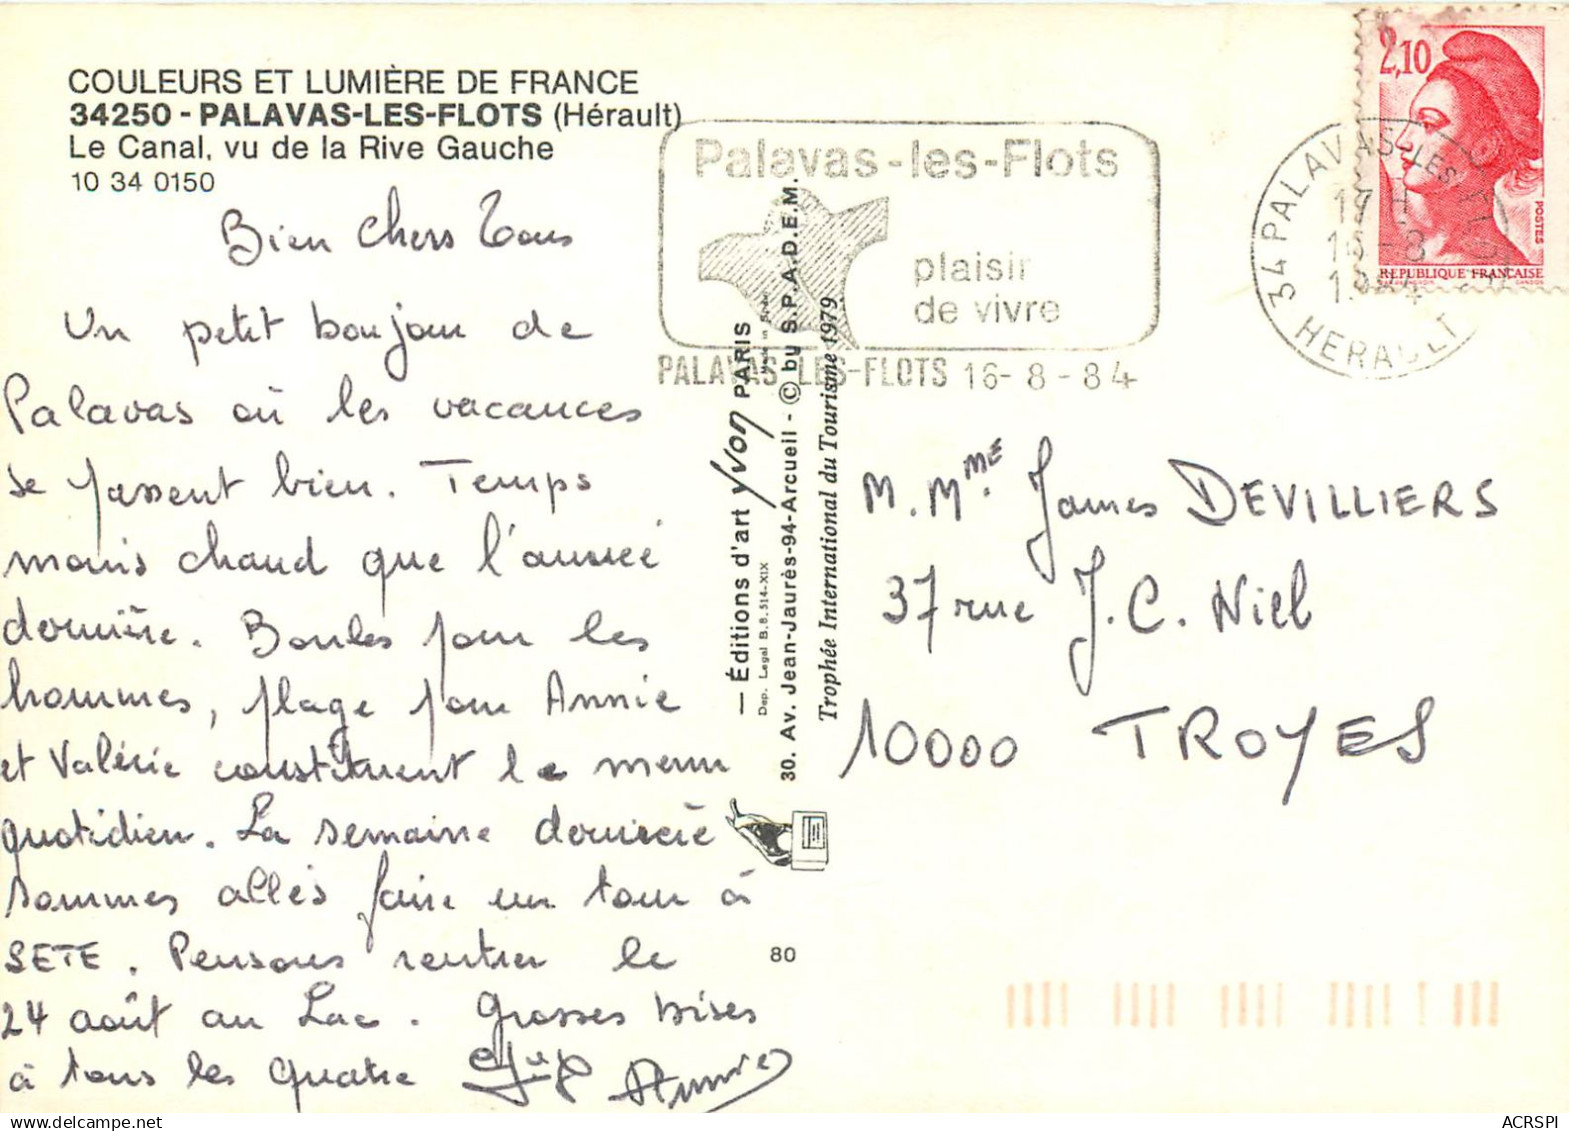 COULEURS ET LUMIÈRE DE FRANCE
34250 - PALAVAS-LES-FLOTS (Hérault)
Le Canal, vu de la Rive Gauche
10 34 0150
Bien Chers Tous
Un petit bonjour de
Palavas où les vacances
se passent bien. Temps
moins chaud que l'année
dernière. Boules pour les
hommes, plage pour Annie
et Valérie constituent le menu
quotidien. La semaine dernière
sommes allés faire un tour à
SETE. Pensons rentrer le
24 août au Lac. Grosses bises
à tous les quatre
Palavas-les-Flots
plaisir
de vivre
PALAVAS-LES-FLOTS 16-8-84
34 PALAVAS-LES-FLOTS
HERAULT
2,10
POSTES
REPUBLIQUE FRANÇAISE
— Éditions d'art yvon PARIS
Dep. Legal B.8.514-XIX
30. Av. Jean-Jaurès-94-Arcueil - © by S.P.A.D.E.M.
Trophée International du Tourisme 1979
80
M. Mme. James DEVILLIERS
37 rue J.C. Niel
10000 TROYES
ACRSPI